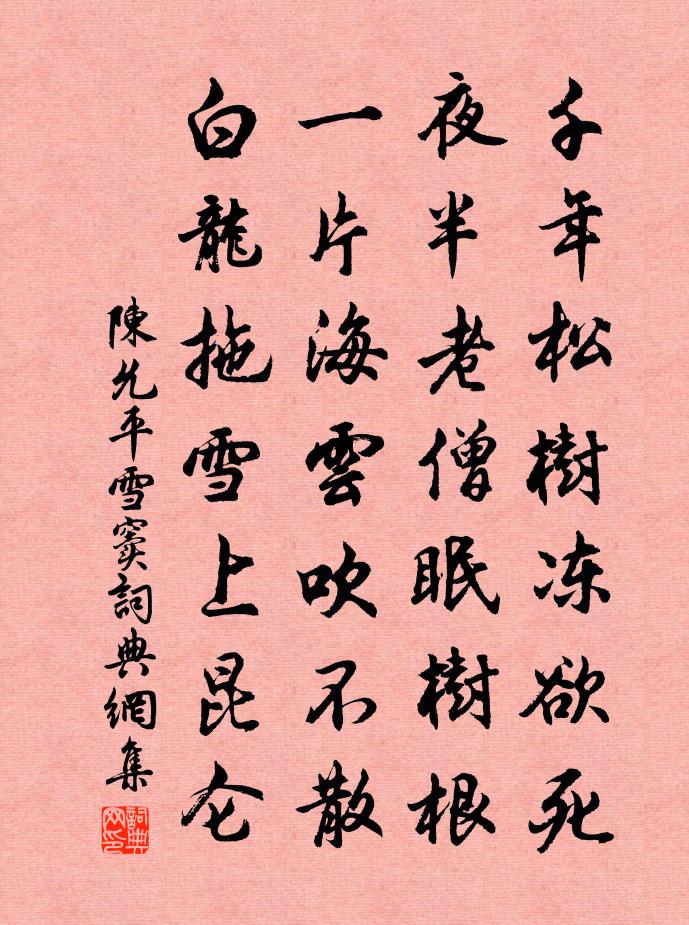 千年松樹冻欲死
夜半老僧眠樹根
一片海雲吹不散
白龍拖雪上昆仑
陳允平雪窦詞典網集
詞典网印